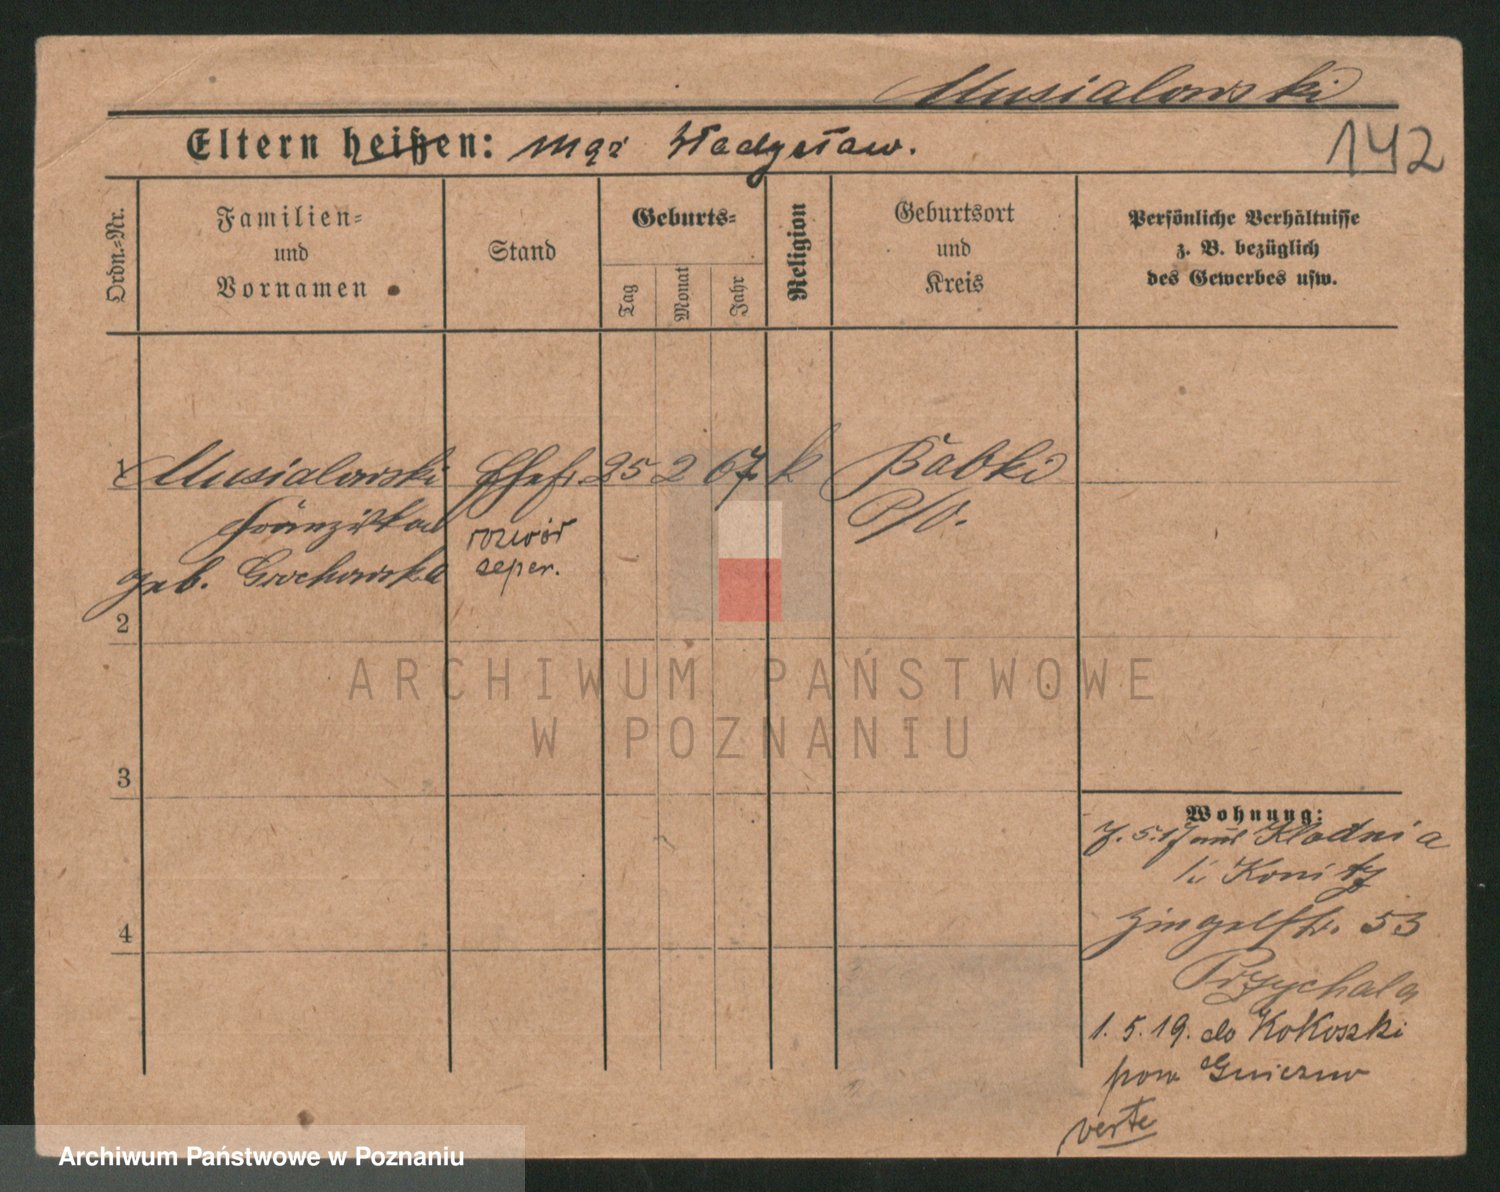 Musialowski
Eltern heißen: mąż Władysław.
142
Ordn.-Nr.
Familien-
und
Vornamen
Stand
Geburts-
Tag
Monat
Jahr
Religion
Geburtsort
und
Kreis
Persönliche Verhältnisse
z. B. bezüglich
des Gewerbes usw.
1 Musialowski Ehefr. 25 2 67 k Babki
Franziska
geb. Grochowska
rozwód
seper.
P/O.
2
3
4
Wohnung:
7.5.17 aus Klodnia
Kr Konitz
Zingelstr. 53
Przychala
1. 5. 19. do Kokoszki
pow Gniezno
verte
ARCHIWUM PAŃSTWOWE
W POZNANIU
Archiwum Państwowe w Poznaniu